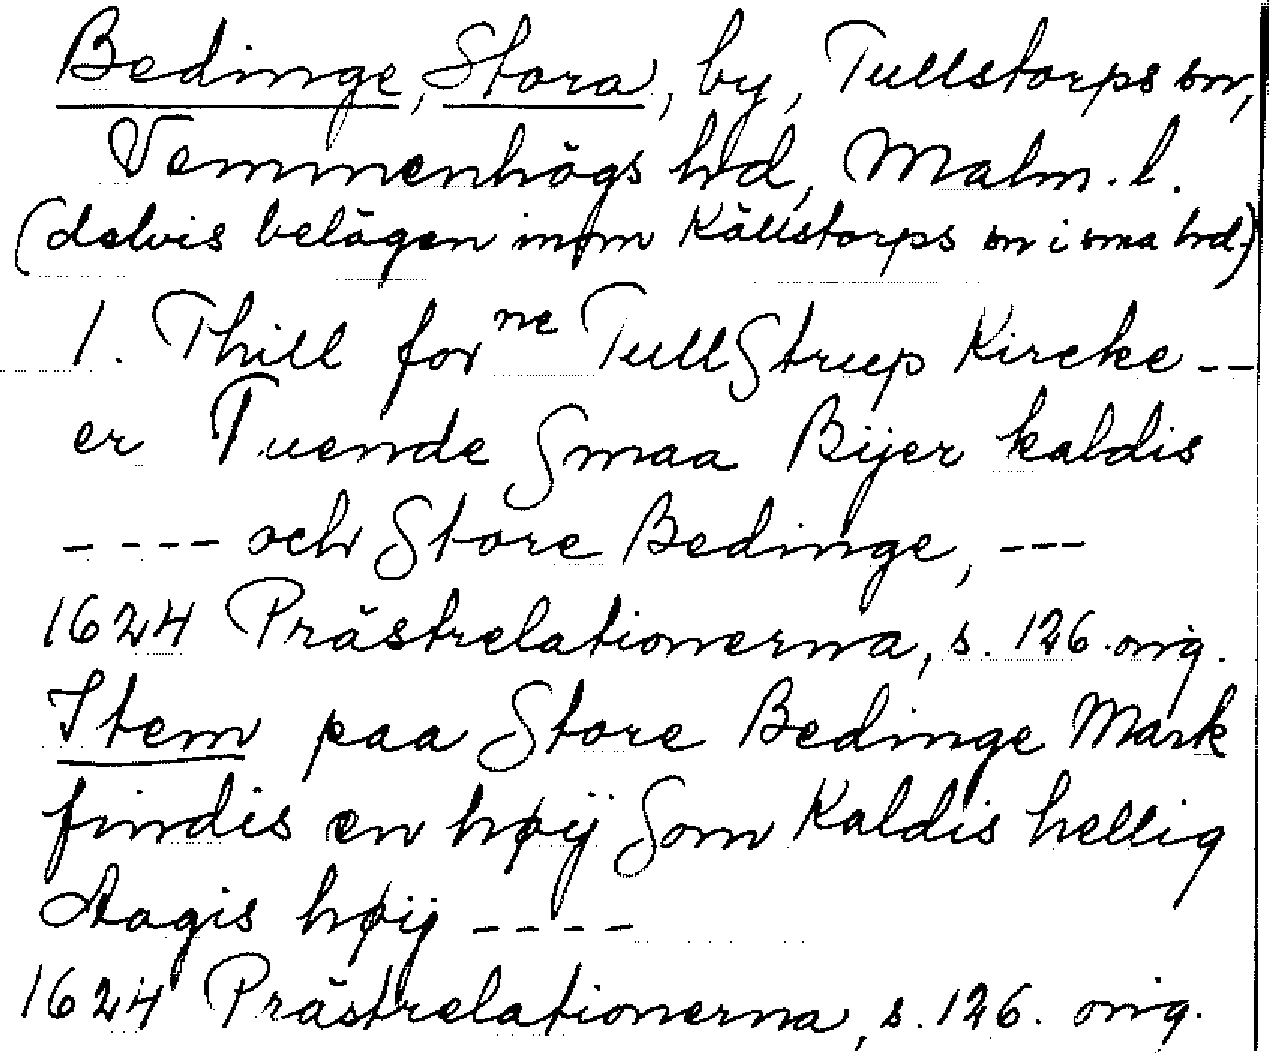 Bedinge, Stora, by, Tullstorps sn,
Vemmenhögs hd, Malm. l.
(delvis belägen inom Källstorps sn i sma hd.)
1. Thill forne TullStrup Kircke --
er Tuende Smaa Bÿer kaldis
---- och Store Bedinge, ---
1624 Prästrelationerna, s. 126. orig.
Item paa Store Bedinge Mark
findis en høÿ Som Kaldis hellig
Aagis høÿ ----
1624 Prästrelationerna, s. 126. orig.